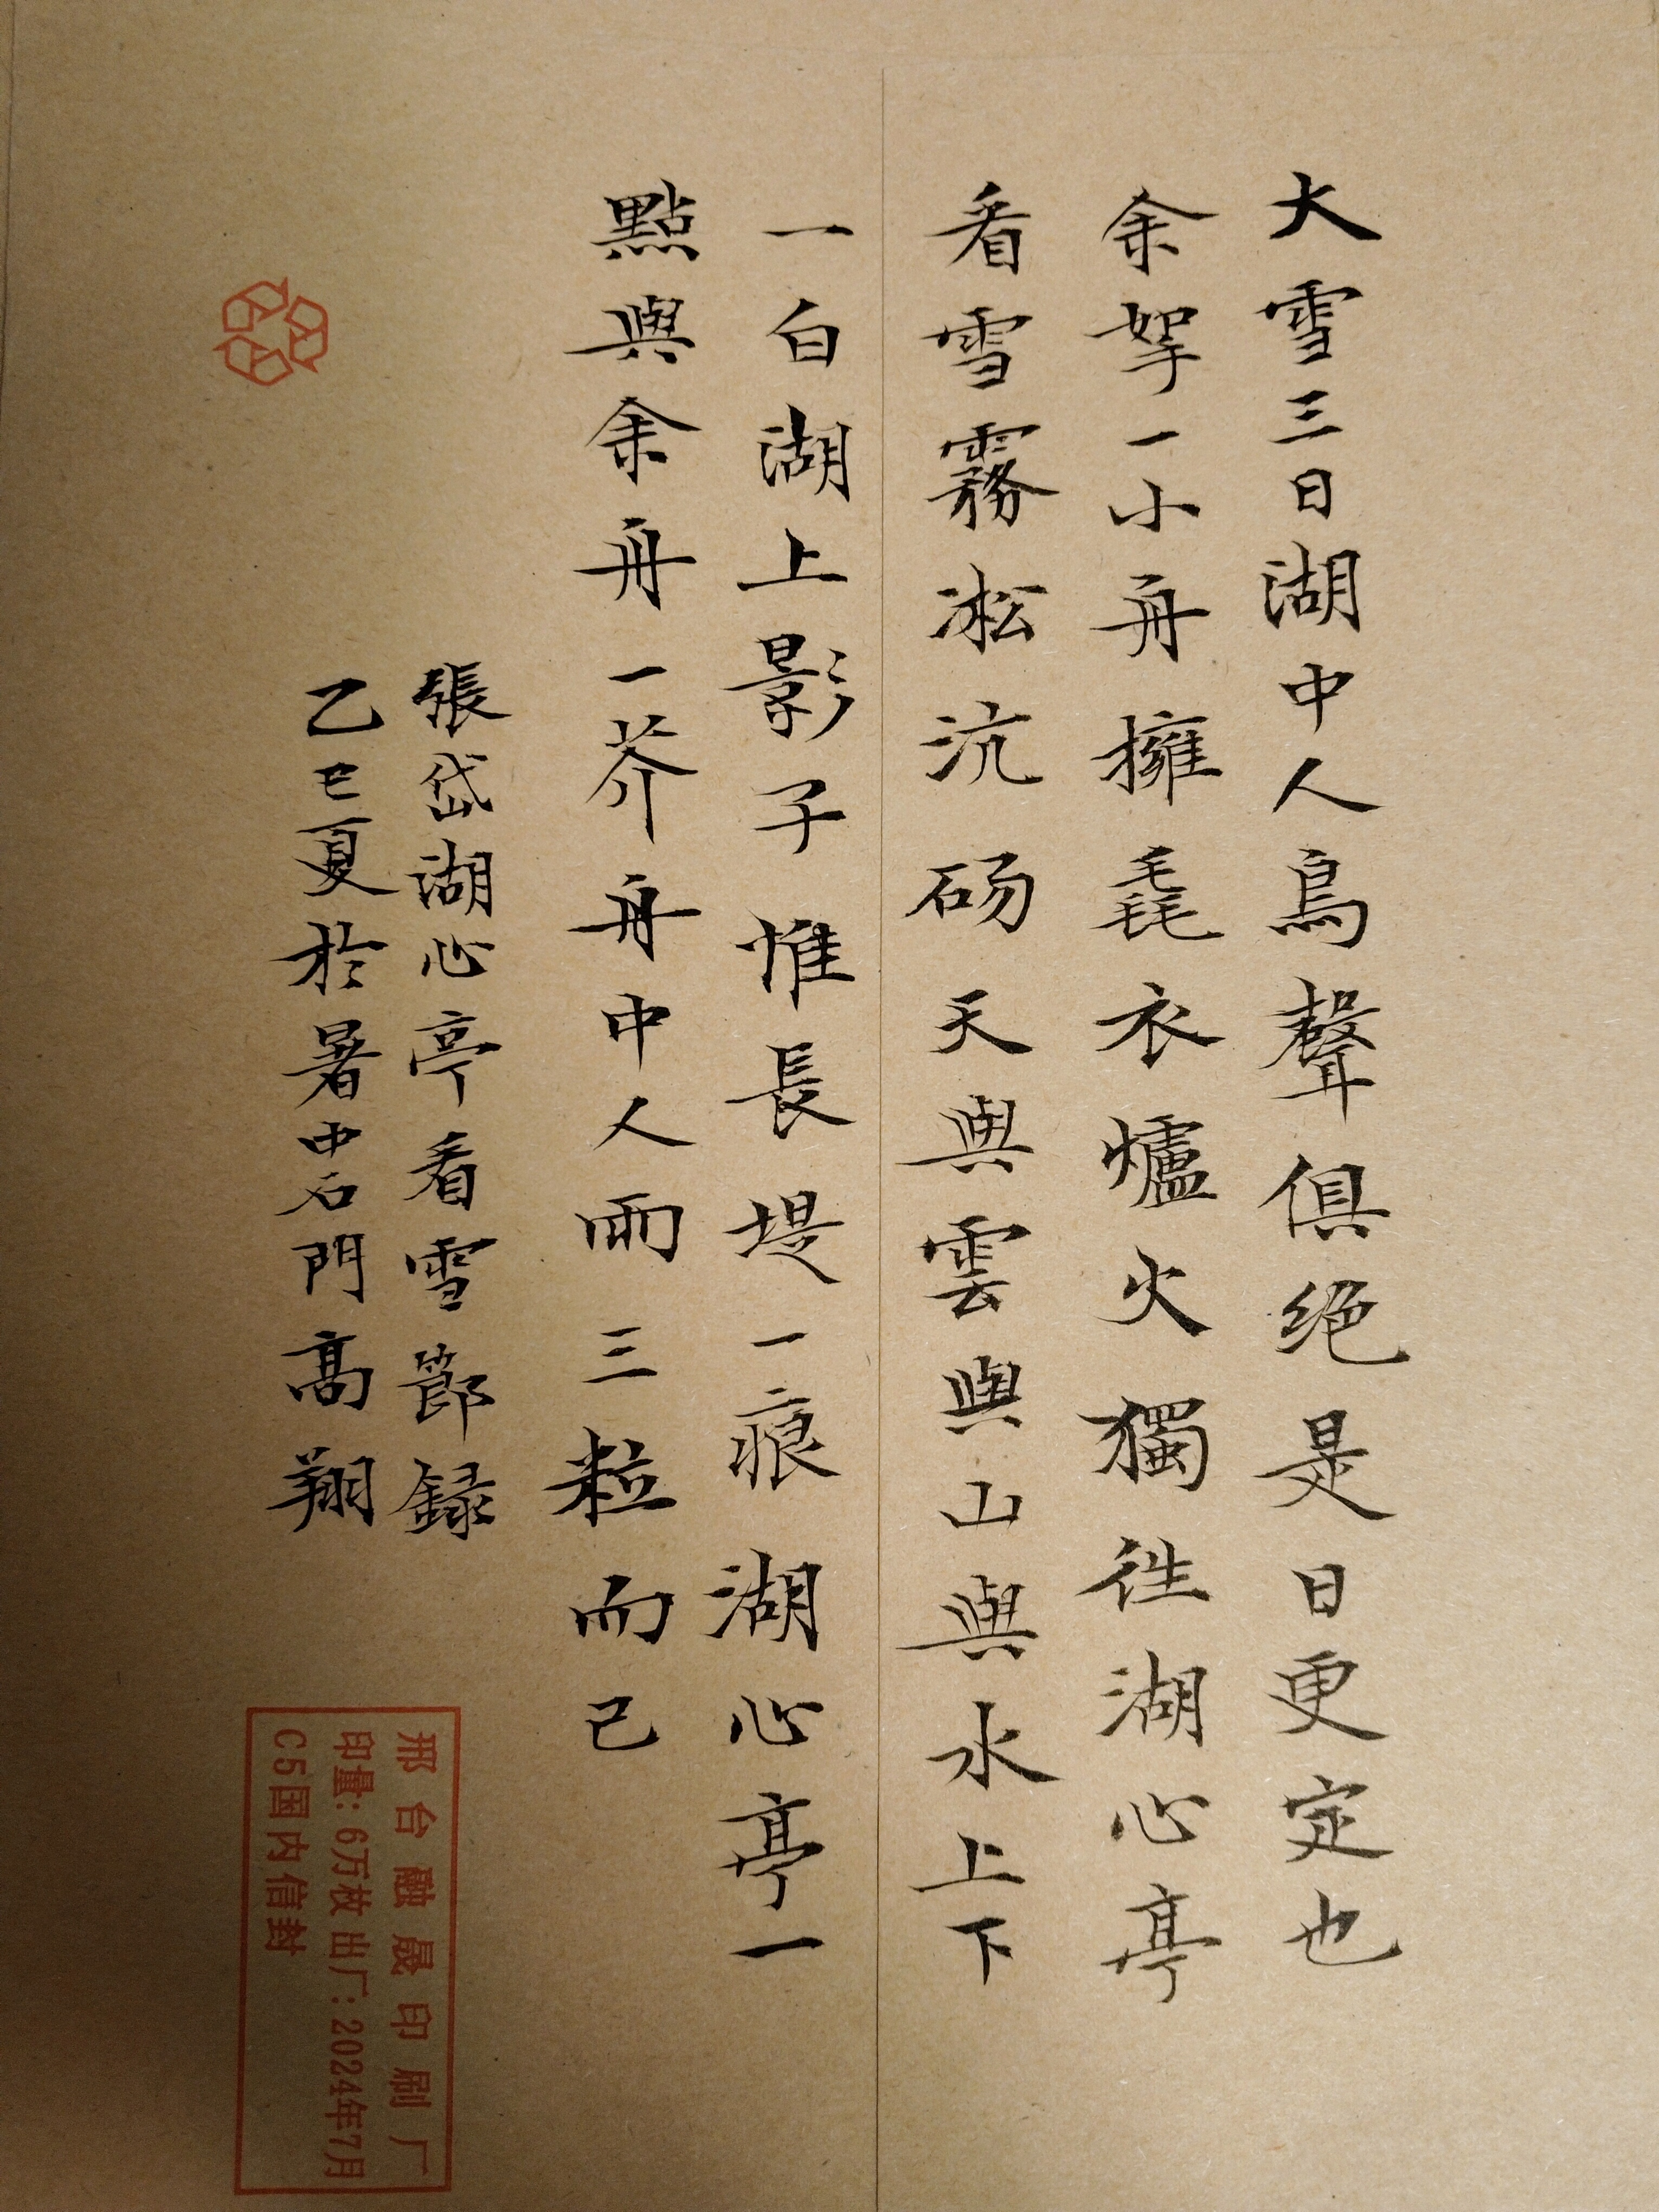 大雪三日湖中人鳥聲俱绝是日更定也
余挐一小舟擁毳衣爐火獨往湖心亭
看雪霧凇沆砀天與雲與山與水上下
一白湖上影子惟長堤一痕湖心亭一
點與余舟一芥舟中人兩三粒而已
張岱湖心亭看雪節録
乙巳夏於暑中石門高翔
邢台融晟印刷厂
印量：6万枚 出厂：2024年7月
C5国内信封